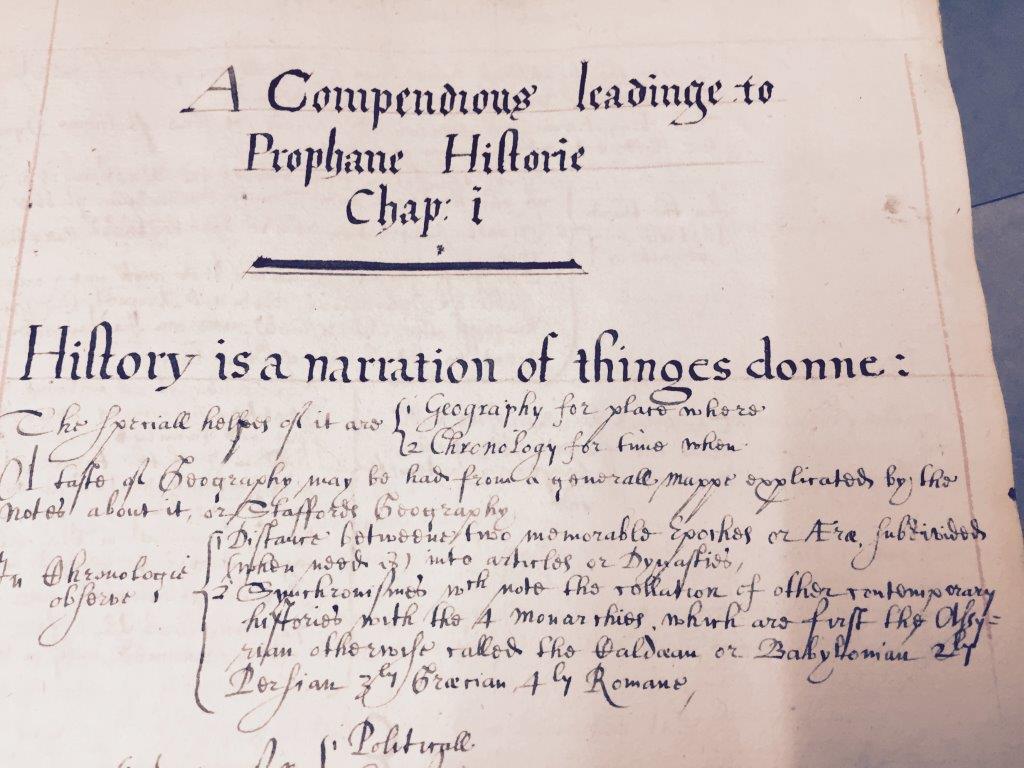 A Compendious leadinge to
Prophane Historie
Chap: i
History is a narration of thinges donne:
The speciall helpes of it are { 1 Geography for place where
2 Chronology for time when
A taste of Geography may be had from a generall mappe explicated by the
notes about it, or Staffords Geography,
In Chronologie observe { 1 Distance betweene two memorable Epoches or Æræ, subdivided
(when need is) into articles or Dynasties,
2 Synchronismes wch note the collation of other contemporary
histories with the 4 monarchies, which are first the Assy=
rian otherwise called the Caldæan or Babylonian 2ly
Persian 3ly Græcian, 4ly Romane,
1 Politicall